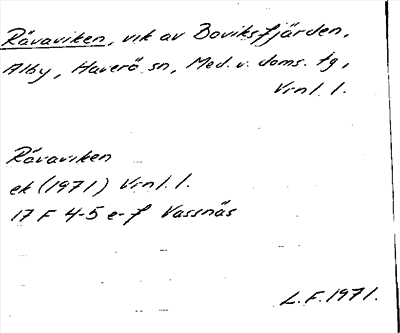 Rävaviken, vik av Boviksfjärden,
Alby, Haverö sn, Med. v. doms. tg,
Vrnl. l.
Rävaviken
ek (1971) Vrnl. l.
17 F 4-5 e-f Vassnäs
L.F. 1971.